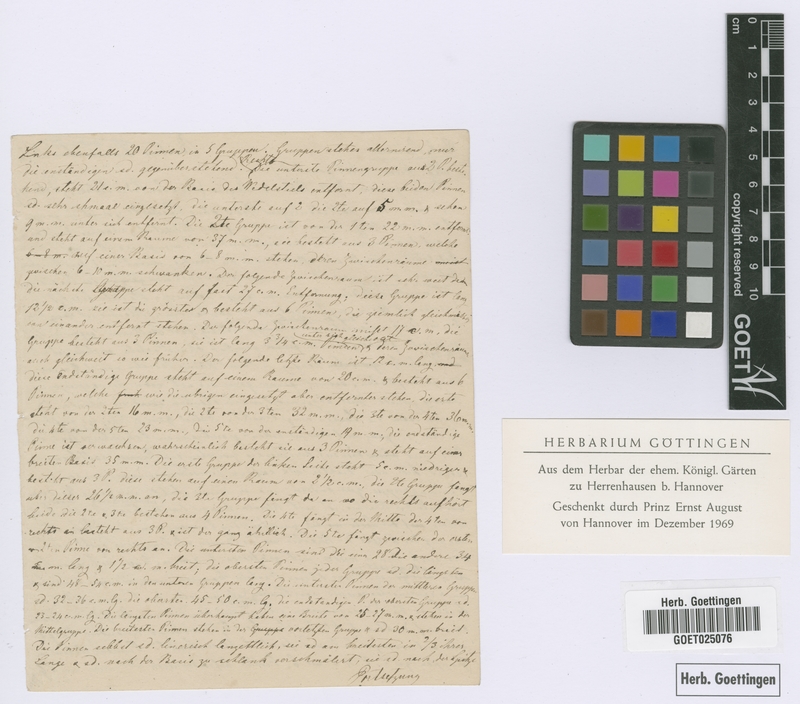 Links ebenfalls 20 Pinnen in 5 Gruppen. Gruppen stehen alternirend nur
die endständigen sd. gegenüberstehend. Rechts die unterste Pinnengruppe aus 2 P. beste-
hend, steht 21 c.m. von der Basis des Wedelstiels entfernt, diese beiden Pinnen
sd. sehr schmal eingesetzt, die unterste auf 2 die 2te auf 5 m.m. & stehen
9 m.m. unter sich entfernt. Die 2te Gruppe ist von der 1ten 22 m.m entfernt
und steht auf einem Raume von 37 m.m., sie besteht aus Pinnen, welche
auf einer Basis von 6-8 m.m. stehen, deren Zwischenräume
zwischen 6-10 m.m schwanken. Der folgende Zwischenraum ist sehr
die nächste Gruppe steht auf fast 27 c.m. Entfernung, diese Gruppe ist lang
12½ c.m. sie ist die grösste & besteht aus 6 Pinnen, die ziemlich gleichmässig
von einander entfernt stehen. Der folgende Zwischenraum misst 17 c.m, die
Gruppe besteht aus 3 Pinnen, sie ist lang 5¼ c.m. Pinnen & deren Zwischenräume
auch gleichweit so wie früher. Der folgende letzte Raum ist 12 c.m. lang
diese endständige Gruppe steht auf einem Raume von 20 c.m. & besteht aus 6
Pinnen, welche wie die übrigen eingesetzt aber entfernter stehen, die erste
steht von der 2ten 16 m.m., die 2te von der 3ten 32 m.m., die 3te von der 4ten 36 m.m,
die 4te von der 5ten 23 m.m., die 5te von der endständigen 19 m.m, die endständige
Pinne ist verwachsen, wahrscheinlich besteht sie aus 3 Pinnen & steht auf einer
breiten Basis 35 m.m. Die erste Gruppe der linken Seite steht 5 c.m. niedriger &
besteht aus 3 P. diese stehen auf einem Raum von 2½ c.m., die 2te Gruppe fängt
über dieser 24½ c.m. an, die 3te Gruppe fängt da an wo die rechts aufhört
beide die 2te & 3te bestehen aus 4 Pinnen. Die 4te fängt in der Mitte der 4ten von
rechts an besteht aus 3 P. & ist der ganz ähnlich. Die 5te fängt zwischen der
Pinne von rechts an. Die untersten Pinnen sind die eine 28 die andere 34
c.m. lang & 1½ c.m. breit; die obersten Pinnen jeder Gruppe sd. die längsten
& sind 48-54 c.m in den unteren Gruppen lang. Die untersten Pinnen der mittleren Gruppe
sd. 32-36 c.m. lg. die obersten 45-50 c.m. lg. die endständigen P. der obersten Gruppe sd.
23-24 c.m lg. Die längsten Pinnen überhaupt haben eine Breite von 25-27 m.m. & stehen in der
Mittelgruppe. Die breitesten Pinnen stehen in der vorletzten Gruppe & sd 30 m.m breit.
Die Pinnen selbst sd. linearisch lanzettlich, sie sd am breitesten in 2/3 ihrer
Länge & sd. nach der Basis zu schlank verschmälert; sie sd nach der Spitze
Fortsetzung
cm
0
1
2
3
4
5
6
7
8
9
10
copyright reserved
GOET
HERBARIUM GÖTTINGEN
Aus dem Herbar der ehem. Königl. Gärten
zu Herrenhausen b. Hannover
Geschenkt durch Prinz Ernst August
von Hannover im Dezember 1969
Herb. Goettingen
GOET025076
Herb. Goettingen